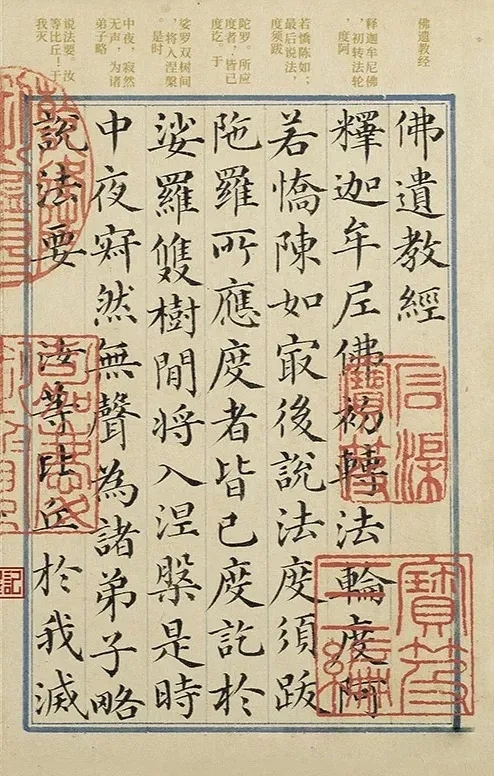 佛遗教经
释迦牟尼佛
，初转法轮
，度阿
若憍陈如；
最后说法，
度须跋
陀罗。所应
度者，皆已
度讫。于
娑罗双树间
，将入涅槃
。是时
中夜，寂然
无声，为诸
弟子略
说法要。汝
等比丘！于
我灭
佛遺教經
釋迦牟尼佛初轉法輪度阿
若憍陳如冣後說法度須跋
陁羅所應度者皆已度訖於
娑羅雙樹間將入涅槃是時
中夜寂然無聲為諸弟子略
說法要 汝等比丘於我滅
寶笈
三編
記